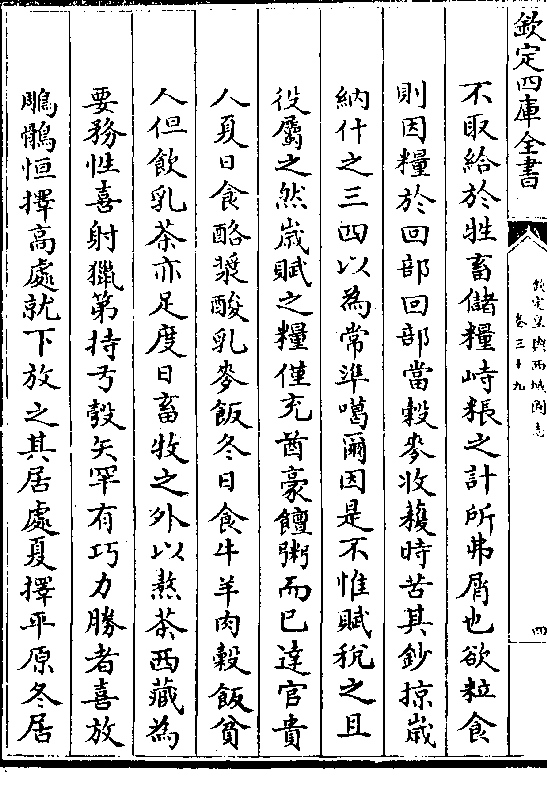 欽定四庫全書
欽定皇輿西域圖志
卷三十九
四
不取給於牲畜儲糧峙粻之計所弗屑也欲粒食
則因糧於回部回部當穀麥收穫時苦其鈔掠歲
納什之三四以為常準噶爾因是不惟賦稅之且
役屬之然歲賦之糧僅充酋豪饘粥而已達官貴
人夏日食酪漿酸乳麥飯冬日食牛羊肉穀飯貧
人但飲乳茶亦足度日畜牧之外以熬茶西藏為
要務性喜射獵第持弓彀矢罕有巧力勝者喜放
鵰鶻恒擇高處就下放之其居處夏擇平原冬居